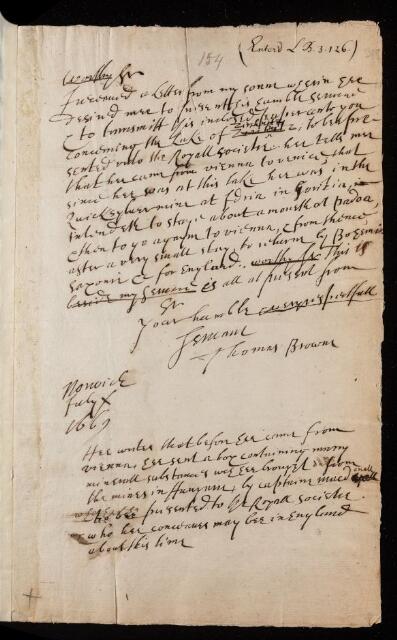 154
(Enterd L B. 3. 126)
Worthy Sr
I received a letter from my sonne wherin hee
desired mee to present his humble service
& to transmitt this inclosed unto you
concerning the Lake of to bee pre-
sented unto the Royall Societie hee tells mee
that hee came from vienna to venice & that
since hee was at this lake hee was in the
quicksylver mine at Idria in Goritia,
intendeth to stay about a month at Padoa,
& then to go agayne to vienna, & from thence
after a very small stay, to returne by Bohemia
Saxonie &c for England. this is
all at present from
Sr
your humble
servant
Thomas Browne
Norwich
July
1669
Hee writes that before hee came from
vienna, hee sent a box containing many
minerall substances wch hee brought from
the mines in Hungarie, by captaine
to bee presented to ye Royall Societie
who hee conceives may bee in England
about this time